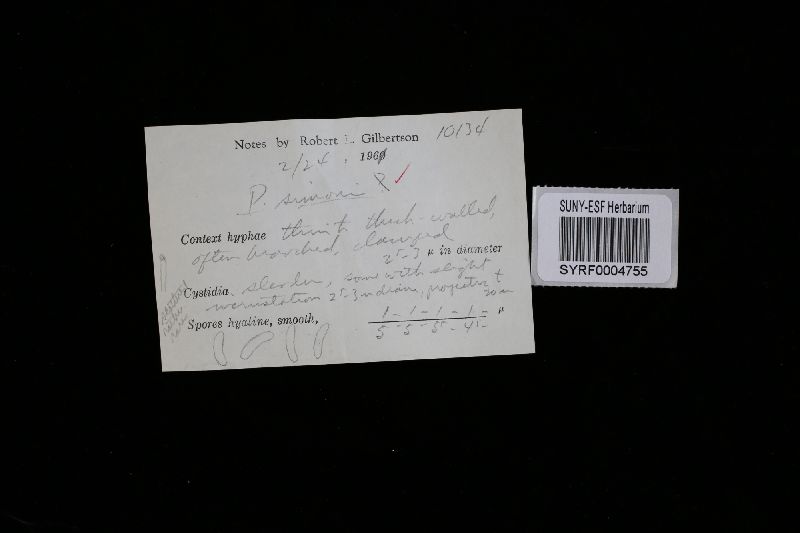 Notes by Robert L. Gilbertson 10134
2/24, 1961
P. simani ?
Context hyphae thin to thick-walled,
often branched, clamped
2.5-3 µ in diameter
Cystidia slender, some with slight
incrustation 2.5-3 µ diam, projecting to
20 µ
Spores hyaline, smooth,
1 - 1 - 1 - 1 - µ
5 - 5 - 5 - 4.5 -
SUNY-ESF Herbarium
SYRF0004755